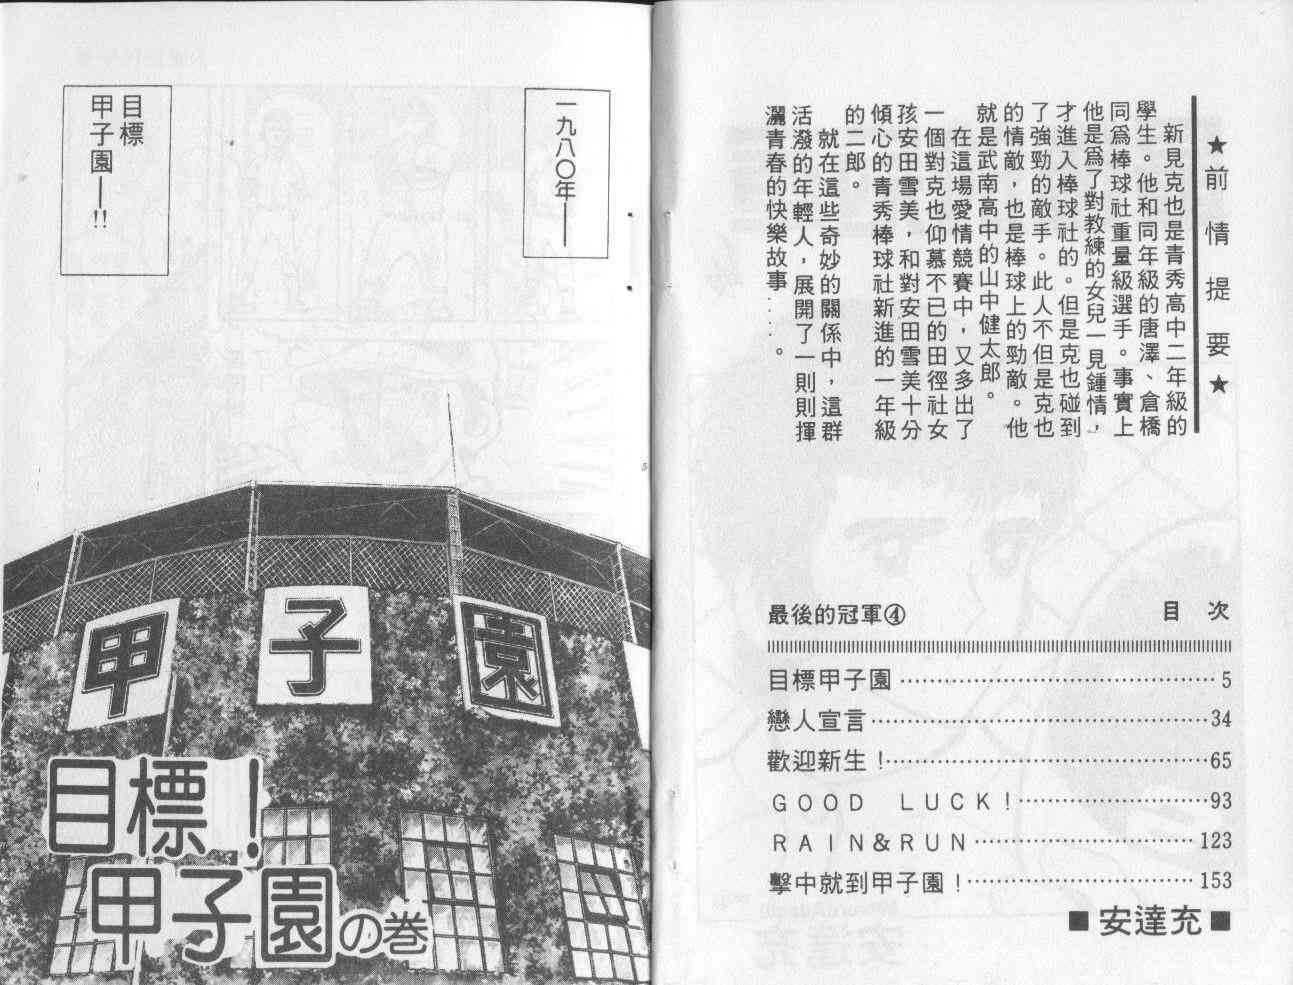 ★前情提要★
新見克也是青秀高中二年級的
學生。他和同年級的唐澤、倉橋
同爲棒球社重量級選手。事實上
他是爲了對教練的女兒一見鍾情，
才進入棒球社的。但是克也碰到
了強勁的敵手。此人不但是克也
的情敵，也是棒球上的勁敵。他
就是武南高中的山中健太郎。
在這場愛情競賽中，又多出了
一個對克也仰慕不已的田徑社女
孩安田雪美，和對安田雪美十分
傾心的青秀棒球社新進的一年級
的二郎。
就在這些奇妙的關係中，這群
活潑的年輕人，展開了一則則揮
灑青春的快樂故事……。
最後的冠軍④ 目次
目標甲子園 ……………………………… 5
戀人宣言 ……………………………… 34
歡迎新生！ ……………………………… 65
GOOD LUCK! ……………………………… 93
RAIN&RUN ……………………………… 123
擊中就到甲子園！ ……………………………… 153
■安達充■
一九八〇年——
目標
甲子園——!!
甲子園
目標！
甲子園の巻